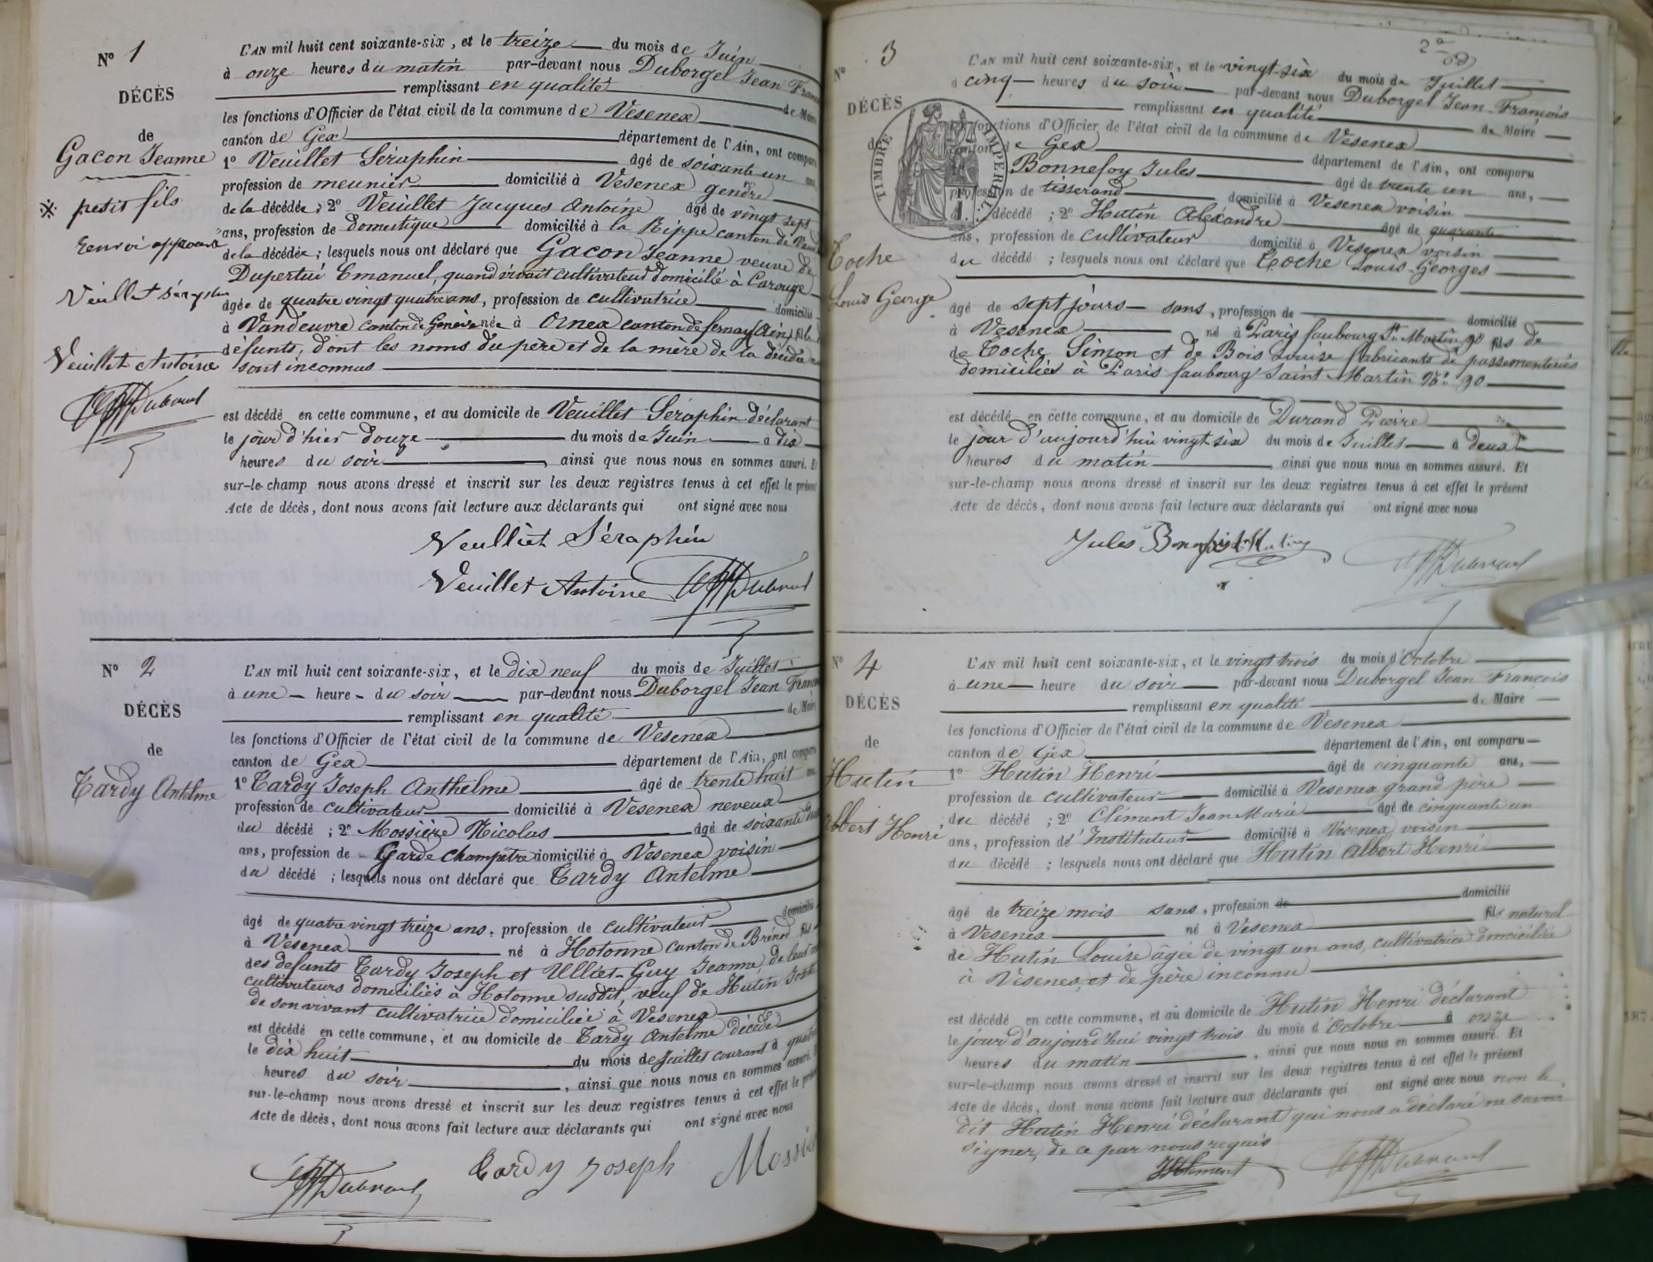 N° 1
DÉCÈS
de
Gacon Jeanne
※ petit fils
Renvoi approuvé
Veuillet Séraphin
Veuillet Antoine
L'AN mil huit cent soixante-six, et le treize du mois de Juin
à onze heures du matin par-devant nous Duborgel Jean Franc
remplissant en qualité de Maire
les fonctions d'Officier de l'état civil de la commune de Vesenex
canton de Gex département de l'Ain, ont comparu
1° Veuillet Séraphin âgé de soixante un
profession de meunier domicilié à Vesenex gendre
de la décédée ; 2° Veuillet Jacques Antoine âgé de vingt sept
ans, profession de domestique domicilié à la Rippe canton de Vaud
de la décédée ; lesquels nous ont déclaré que Gacon Jeanne veuve de
Dupertui Emanuel, quand vivait cultivateur domicilié à Carouge
âgée de quatre vingt quatre ans, profession de cultivatrice domicilié
à Vandeuvre canton de Genève née à Ornex canton de fernay (Ain) fille
défunts, dont les noms du père et de la mère de la décédée
sont inconnus
est décédé en cette commune, et au domicile de Veuillet Séraphin déclarant
le jour d'hier douze du mois de Juin à dix
heures du soir, ainsi que nous nous en sommes assuré. Et
sur-le-champ nous avons dressé et inscrit sur les deux registres tenus à cet effet le présent
Acte de décès, dont nous avons fait lecture aux déclarants qui ont signé avec nous
Veulliet Séraphin
Veuillet Antoine
N° 2
DÉCÈS
de
Tardy Antelme
L'AN mil huit cent soixante-six, et le dix neuf du mois de Juillet
à une heure du soir par-devant nous Duborgel Jean François
remplissant en qualité de Maire
les fonctions d'Officier de l'état civil de la commune de Vesenex
canton de Gex département de l'Ain, ont comparu
1° Tardy Joseph Anthelme âgé de trente huit
profession de cultivateur domicilié à Vesenex neveux
du décédé ; 2° Mossière Nicolas âgé de soixante
ans, profession de Garde champêtre domicilié à Vesenex voisin
du décédé ; lesquels nous ont déclaré que Tardy Antelme
âgé de quatre vingt treize ans, profession de cultivateur domicilié
à Vesenex né à Hotonne Canton de Brénod fils
des défunts Tardy Joseph et Ulliet-Guy Jeanne, de leur
cultivateurs domiciliés à Hotonne susdit, veuf de Hutin
de son vivant cultivatrice domiciliée à Vesenex
est décédé en cette commune, et au domicile de Tardy Antelme décédé
le dix huit du mois de Juillet courant à quatre
heures du soir, ainsi que nous nous en sommes assuré.
sur-le-champ nous avons dressé et inscrit sur les deux registres tenus à cet effet le présent
Acte de décès, dont nous avons fait lecture aux déclarants qui ont signé avec nous
Tardy Joseph
N° 3
DÉCÈS
TIMBRE IMPÉRIAL
Toche
Louis George
L'AN mil huit cent soixante-six, et le vingt-six du mois de Juillet
à cinq heures du soir par-devant nous Duborgel Jean-François
remplissant en qualité de Maire
les fonctions d'Officier de l'état civil de la commune de Vesenex
canton de Gex département de l'Ain, ont comparu
Bonnefoy Jules âgé de trente un ans,
profession de tisserand domicilié à Vesenex voisin
décédé ; 2° Hutin Alexandre âgé de quarante
ans, profession de cultivateur domicilié à Vesenex voisin
du décédé ; lesquels nous ont déclaré que Toche Louis-Georges
âgé de sept jours sans, profession de domicilié
à Vesenex né à Paris faubourg St Martin 90 fils de
de Toche Simon et de Bois Louise fabricants de passementeries
domiciliés à Paris faubourg Saint-Martin N° 90
est décédé en cette commune, et au domicile de Durand Pierre
le jour d'aujourd'hui vingt six du mois de Juillet à deux
heures du matin, ainsi que nous nous en sommes assuré. Et
sur-le-champ nous avons dressé et inscrit sur les deux registres tenus à cet effet le présent
Acte de décès, dont nous avons fait lecture aux déclarants qui ont signé avec nous
N° 4
DÉCÈS
de
Hutin
Albert Henri
L'AN mil huit cent soixante-six, et le vingt trois du mois d'Octobre
à une heure du soir par-devant nous Duborgel Jean François
remplissant en qualité de Maire
les fonctions d'Officier de l'état civil de la commune de Vesenex
canton de Gex département de l'Ain, ont comparu
1° Hutin Henri âgé de cinquante ans,
profession de cultivateur domicilié à Vesenex grand père
du décédé ; 2° Clément Jean Marie âgé de cinquante un
ans, profession d'Instituteur domicilié à Vesenex voisin
du décédé ; lesquels nous ont déclaré que Hutin Albert Henri
âgé de treize mois sans, profession de domicilié
à Vesenex né à Vesenex fils naturel
de Hutin Louise âgée de vingt un ans, cultivatrice domiciliée
à Vesenex et de père inconnu
est décédé en cette commune, et au domicile de Hutin Henri déclarant
le jour d'aujourd'hui vingt trois du mois d'Octobre à onze
heures du matin, ainsi que nous nous en sommes assuré. Et
sur-le-champ nous avons dressé et inscrit sur les deux registres tenus à cet effet le présent
Acte de décès, dont nous avons fait lecture aux déclarants qui ont signé avec nous non le
dit Hutin Henri déclarant qui nous a déclaré ne savoir
signer, de ce par nous requis